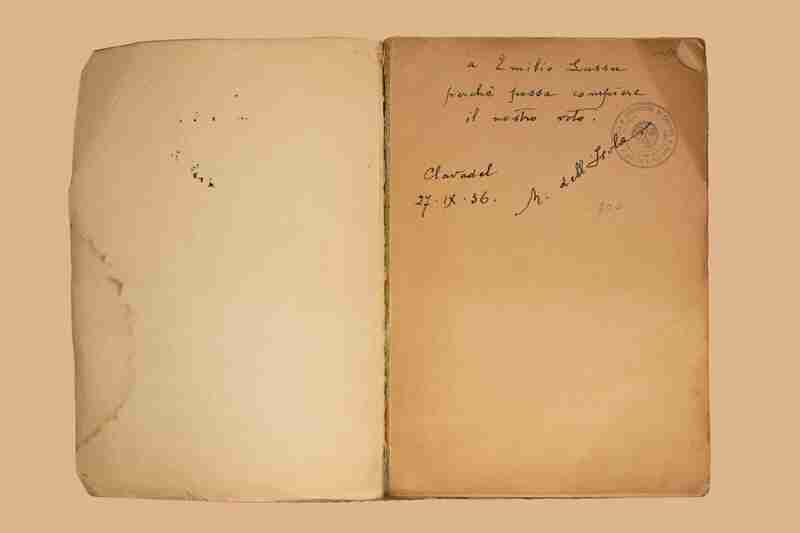 a Emilio Lussu
perchè possa compiere
il nostro voto.
Clavadel
27·IX·36.
M. dell'Isola